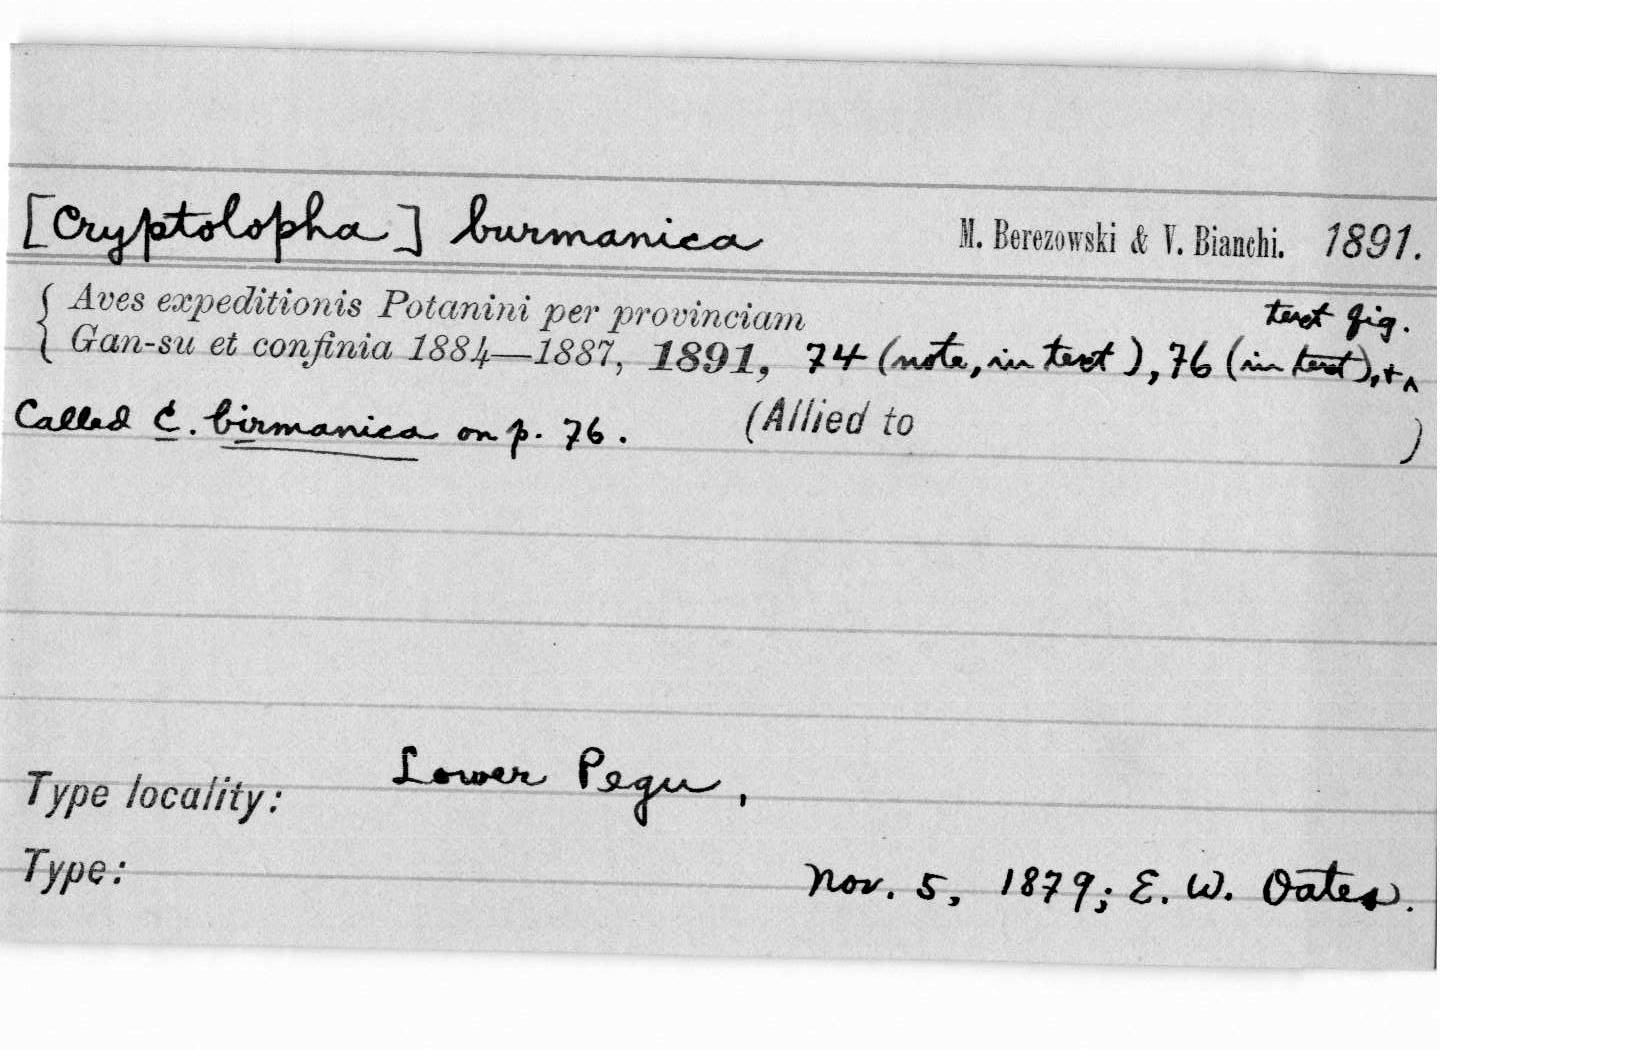 [Cryptolopha] burmanica M. Berezowski & V. Bianchi. 1891.
{ Aves expeditionis Potanini per provinciam text fig.
Gan-su et confinia 1884—1887, 1891, 74 (note, in text), 76 (in text), + ^
Called C. birmanica on p. 76. (Allied to )
Type locality: Lower Pegu,
Type: Nov. 5, 1879; E. W. Oates.